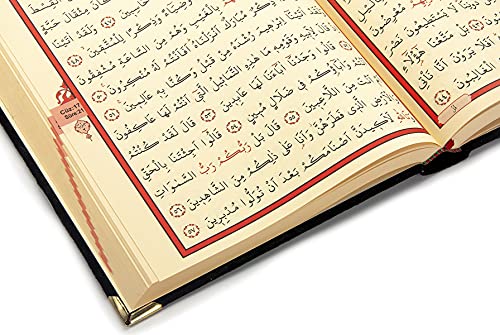 وَضِيَاءً وَذِكْرًا لِلْمُتَّقِينَ
﴿٤٨﴾ رَبَّهُمْ بِالْغَيْبِ وَهُمْ مِنَ السَّاعَةِ مُشْفِقُونَ
﴿٤٩﴾ مُبَارَكٌ اَنْزَلْنَاهُ اَفَاَنْتُمْ لَهُ مُنْكِرُونَ ﴿٥٠﴾ وَلَقَدْ اٰتَيْنَا
مِنْ قَبْلُ وَكُنَّا بِهِ عَالِمِينَ ﴿٥١﴾
لِاَبِيهِ وَقَوْمِهِ مَا هٰذِهِ التَّمَاثِيلُ الَّتِي اَنْتُمْ لَهَا عَاكِفُونَ
﴿٥٢﴾ قَالُوا وَجَدْنَا اٰبَاءَنَا لَهَا عَابِدِينَ ﴿٥٣﴾ قَالَ لَقَدْ كُنْتُمْ
اَنْتُمْ وَاٰبَاؤُكُمْ فِي ضَلَالٍ مُبِينٍ ﴿٥٤﴾ قَالُوا اَجِئْتَنَا بِالْحَقِّ
اَمْ اَنْتَ مِنَ اللَّاعِبِينَ ﴿٥٥﴾ قَالَ بَلْ رَبُّكُمْ رَبُّ السَّمٰوَاتِ
وَالْاَرْضِ الَّذِي فَطَرَهُنَّ وَاَنَا عَلٰى ذٰلِكُمْ مِنَ الشَّاهِدِينَ ﴿٥٦﴾
وَتَاللّٰهِ لَاَكِيدَنَّ اَصْنَامَكُمْ بَعْدَ اَنْ تُوَلُّوا مُدْبِرِينَ ﴿٥٧﴾
Cüz:17
Sure:21
مُعْرِضُونَ
لَا يَسْتَطِيعُونَ نَصْرَ
بَلْ مَتَّعْنَا هٰؤُلَاءِ
يَرَوْنَ اَنَّا نَأْتِي
الْغَالِبُونَ ﴿٤٤﴾